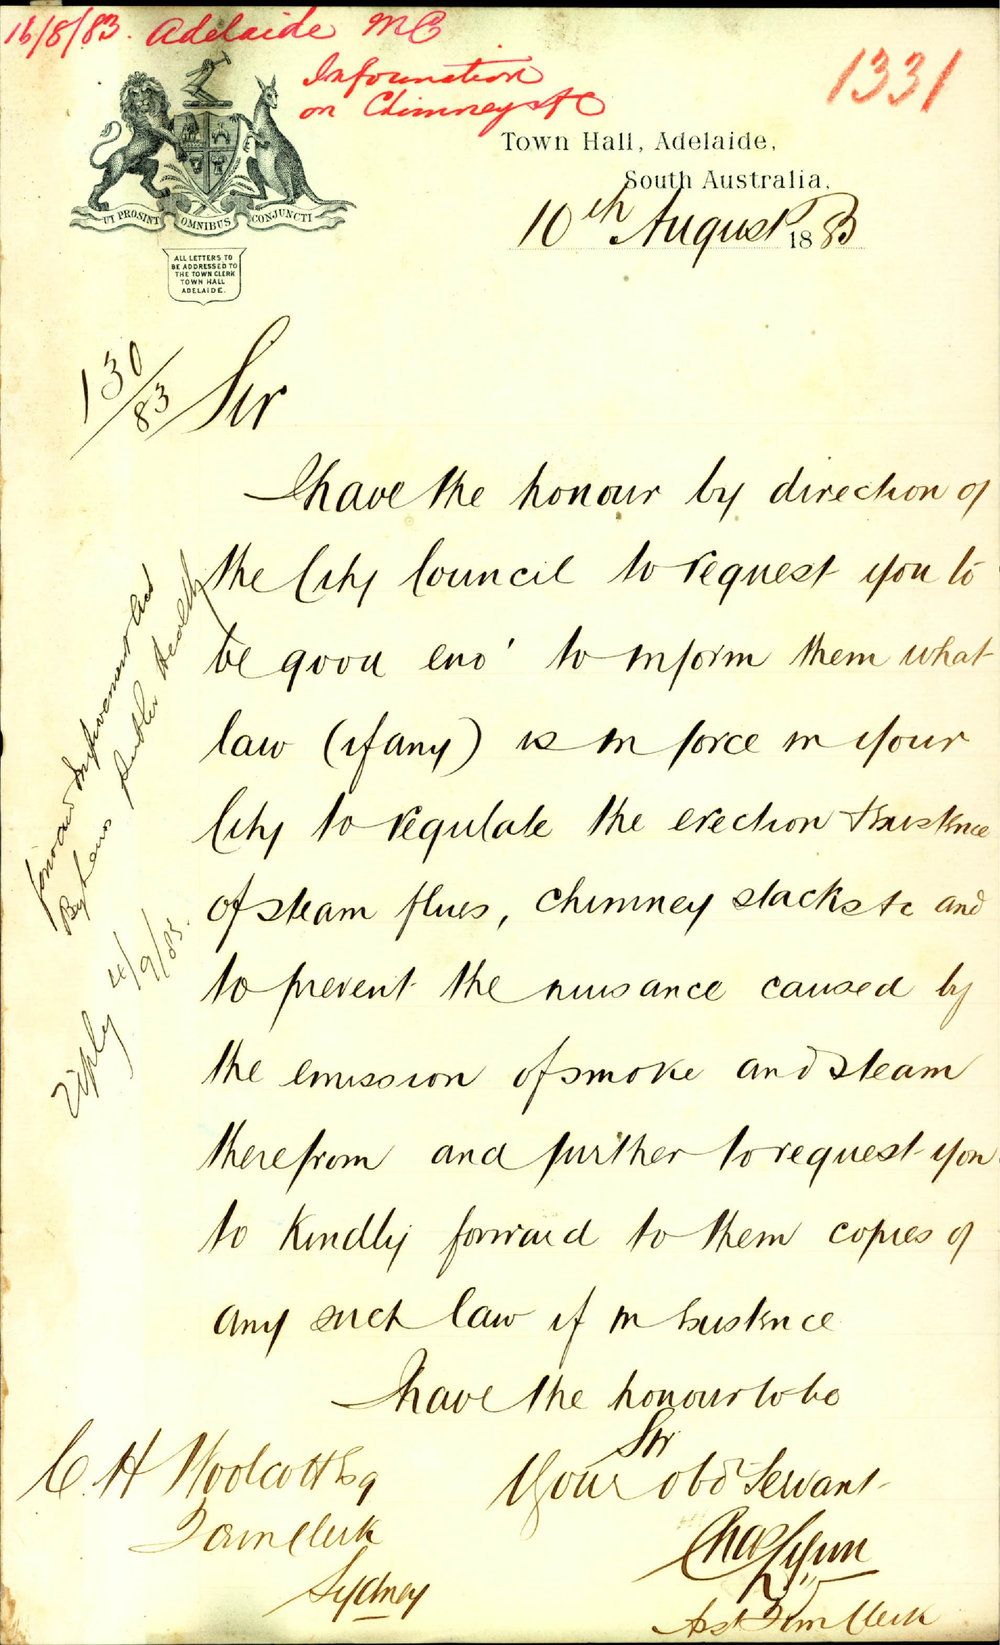 16/8/83. Adelaide MC
Information
on Chimneys &c
1331
UT PROSINT OMNIBUS CONJUNCTI
ALL LETTERS TO
BE ADDRESSED TO
THE TOWN CLERK
TOWN HALL
ADELAIDE.
Town Hall, Adelaide,
South Australia,
10th August 1883
130/83
Sir
I have the honour by direction of
the City Council to request you to
be good eno' to inform them what
law (if any) is in force in your
City to regulate the erection & existence
of steam flues, chimney stacks &c and
to prevent the nuisance caused by
the emission of smoke and steam
therefrom and further to request you
to kindly forward to them copies of
any such law if in existence
I have the honour to be
Sir
Your obd Servant
Chas Lyon
Asst Town Clerk
C. H Woolcott Esq
Town Clerk
Sydney
forward Improvement Act
By Laws Public Health
reply 4/9/83.